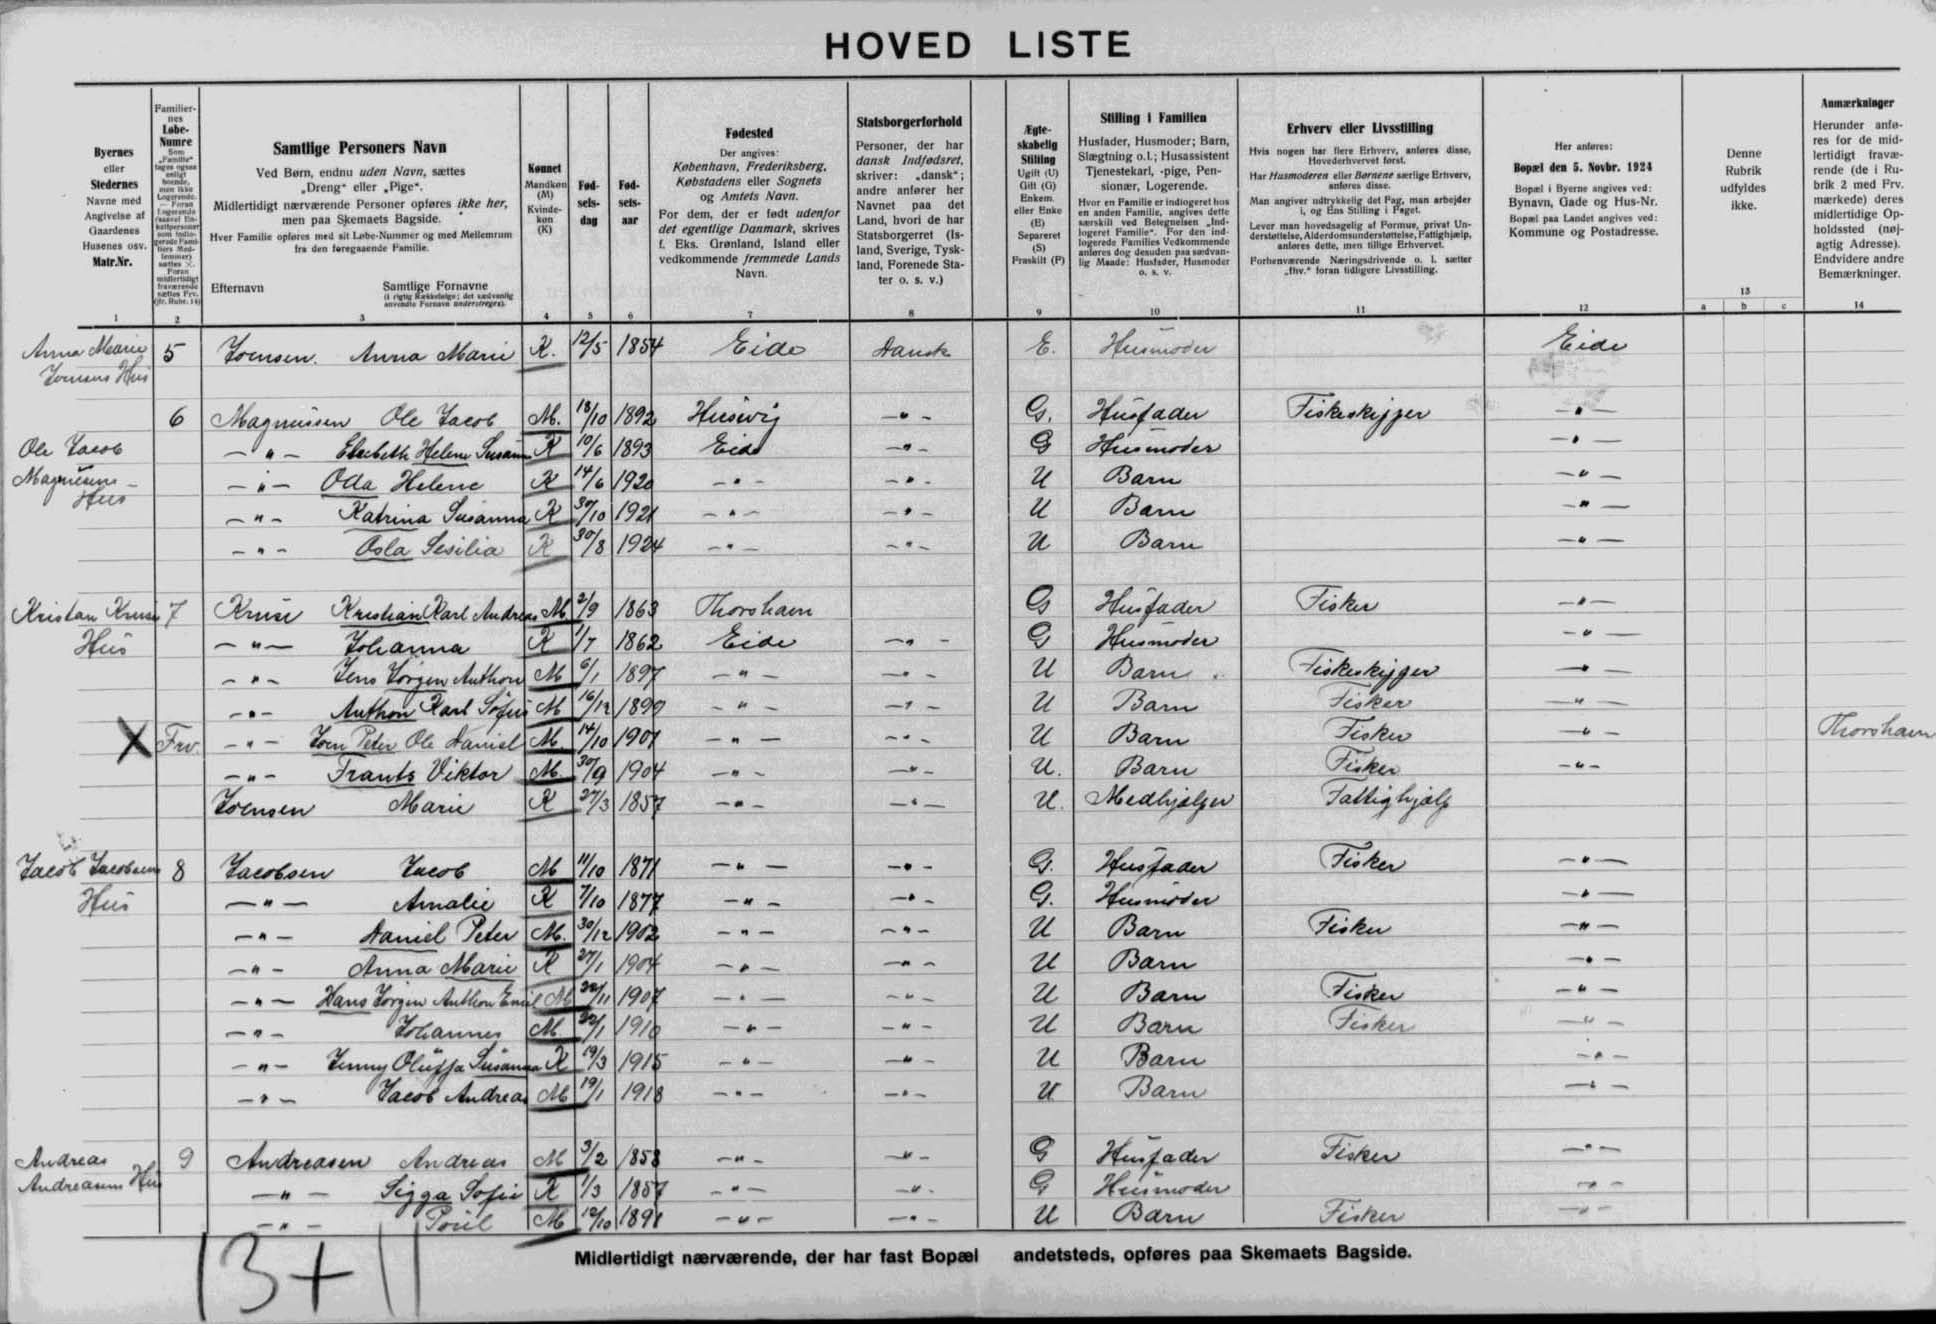 HOVED LISTE
Byernes eller Stedernes Navne med Angivelse af Gaardenes Husenes osv. Matr.Nr.
Familiernes Løbe-Numre
Samtlige Personers Navn
Ved Børn, endnu uden Navn, sættes „Dreng“ eller „Pige“.
Midlertidigt nærværende Personer opføres ikke her, men paa Skemaets Bagside.
Hver Familie opføres med sit Løbe-Nummer og med Mellemrum fra den foregaaende Familie.
Efternavn Samtlige Fornavne
(i rigtig Rækkefølge; det sædvanlig anvendte Fornavn understreges).
Kønnet Mandkøn (M) Kvindekøn (K)
Fødselsdag
Fødselsaar
Fødested
Der angives: København, Frederiksberg, Købstadens eller Sognets og Amtets Navn.
For dem, der er født udenfor det egentlige Danmark, skrives f. Eks. Grønland, Island eller vedkommende fremmede Lands Navn.
Statsborgerforhold
Personer, der har dansk Indfødsret, skriver: „dansk“; andre anfører her Navnet paa det Land, hvori de har Statsborgerret (Island, Sverige, Tyskland, Forenede Stater o. s. v.)
Ægteskabelig Stilling Ugift (U) Gift (G) Enkem. eller Enke (E) Separeret (S) Fraskilt (F)
Stilling i Familien
Husfader, Husmoder; Barn, Slægtning o.l.; Husassistent Tjenestekarl, -pige, Pensionær, Logerende.
Hvor en Familie er indlogeret hos en anden Familie, angives dette særskilt ved Betegnelsen „Indlogeret Familie“. For den indlogerede Families Vedkommende anføres dog desuden paa sædvanlig Maade: Husfader, Husmoder o. s. v.
Erhverv eller Livsstilling
Hvis nogen har flere Erhverv, anføres disse, Hovederhvervet først.
Har Husmoderen eller Børnene særlige Erhverv, anføres disse.
Man angiver udtrykkelig det Fag, man arbejder i, og Ens Stilling i Faget.
Lever man hovedsagelig af Formue, privat Understøttelse, Alderdomsunderstøttelse, Fattighjælp, anføres dette, men tillige Erhvervet.
Forhenværende Næringsdrivende o. l. sætter „fhv.“ foran tidligere Livsstilling.
Her anføres: Bopæl den 5. Novbr. 1924
Bopæl i Byerne angives ved: Bynavn, Gade og Hus-Nr.
Bopæl paa Landet angives ved: Kommune og Postadresse.
Denne Rubrik udfyldes ikke.
Anmærkninger
Herunder anføres for de midlertidigt fraværende (de i Rubrik 2 med Frv. mærkede) deres midlertidige Opholdssted (nøjagtig Adresse). Endvidere andre Bemærkninger.
1 2 3 4 5 6 7 8 9 10 11 12 13 a b c 14
Anna Marie 5 Joensen. Anna Marie K. 12/5 1854 Eide Dansk E. Husmoder Eide
Joensens Hus
6 Magnussen Ole Jacob M. 18/10 1892 Husevig -"- G. Husfader Fiskeskipper -"-
Ole Jacob -"- Elsebeth Helene Susanne K 10/6 1893 Eide -"- G Husmoder -"-
Magnussens -"- Olla Helene K 14/6 1920 -"- -"- U Barn -"-
Hus
-"- Katrina Susanna K 30/10 1921 -"- -"- U Barn -"-
-"- Osla Sesilia K 30/8 1924 -"- -"- U Barn -"-
Kristan Kruse 7 Kruse Kristian Karl Andreas M 2/9 1863 Thorshavn G Husfader Fisker -"-
Hus -"- Johanna K 1/7 1862 Eide -"- G Husmoder -"-
-"- Jens Jørgen Anthon M 6/1 1897 -"- -"- U Barn Fiskeskipper -"-
-"- Anthon Karl Sofus M 16/12 1890 -"- -"- U Barn Fisker -"-
X Frv. -"- Joen Peter Ole Daniel M 14/10 1901 -"- -"- U Barn Fisker -"- Thorshavn
-"- Frants Viktor M. 30/9 1904 -"- -"- U. Barn Fisker -"-
Joensen Marie K 27/3 1857 -"- -"- U. Medhjælper Fattighjælp
Jacob Jacobsens 8 Jacobsen Jacob M 11/10 1871 -"- -"- G. Husfader Fisker -"-
Hus -"- Amalie K 7/10 1877 -"- -"- G. Husmoder -"-
-"- Daniel Peter M. 30/12 1902 -"- -"- U Barn Fisker -"-
-"- Anna Marie K 27/1 1904 -"- -"- U Barn -"-
-"- Hans Jørgen Anthon Emil M 22/11 1907 -"- -"- U Barn Fisker -"-
-"- Johannes M. 22/1 1910 -"- -"- U Barn Fisker -"-
-"- Jenny Oluffa Susanna K 19/3 1915 -"- -"- U Barn -"-
-"- Jacob Andreas M 19/1 1918 -"- -"- U Barn -"-
Andreas 9 Andreasen Andreas M 3/2 1858 -"- -"- G Husfader Fisker -"-
Andreasens Hus -"- Sigga Sofie K 1/3 1857 -"- -"- G Husmoder -"-
-"- Poul M 12/10 1891 -"- -"- U Barn Fisker -"-
Midlertidigt nærværende, der har fast Bopæl andetsteds, opføres paa Skemaets Bagside.
13+11